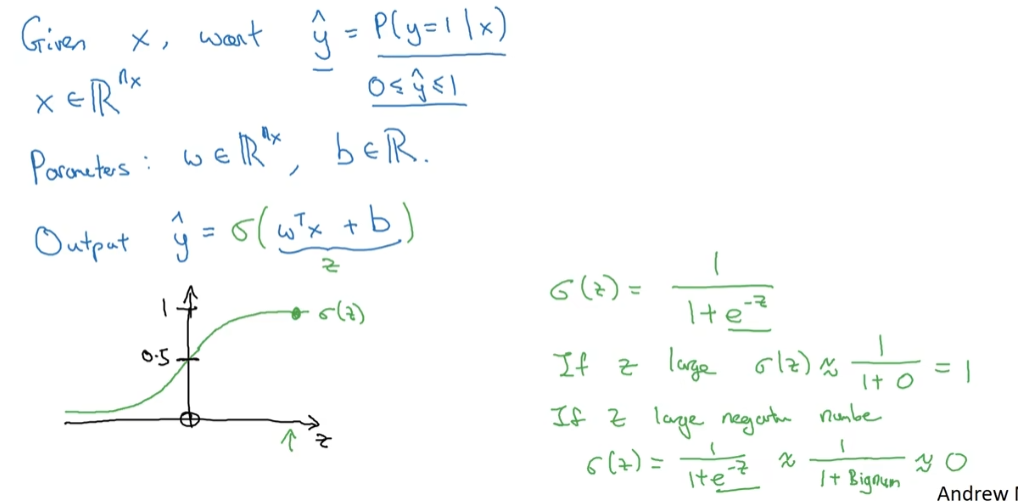 Given x, want ŷ = P(y=1|x)
x ∈ ℝ^{n_x}
0 ≤ ŷ ≤ 1
Parameters: w ∈ ℝ^{n_x}, b ∈ ℝ.
Output ŷ = σ(w^T x + b)
z
1
σ(z)
0.5
z
σ(z) = 1 / (1 + e^{-z})
If z large σ(z) ≈ 1 / (1 + 0) = 1
If z large negative number
σ(z) = 1 / (1 + e^{-z}) ≈ 1 / (1 + Bignum) ≈ 0
Andrew